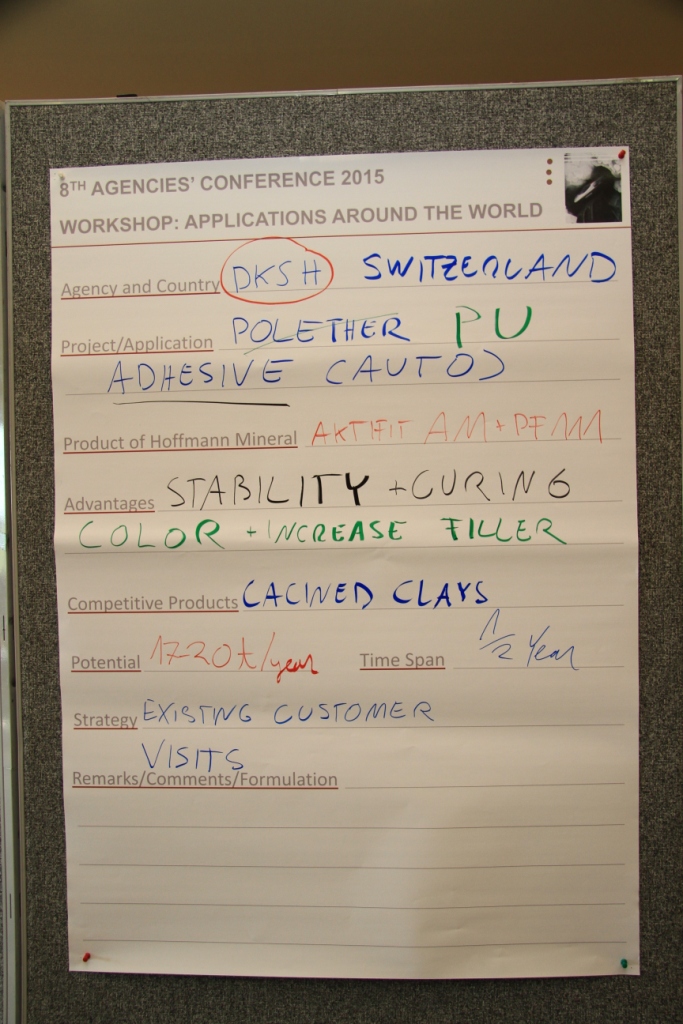 8TH AGENCIES' CONFERENCE 2015
WORKSHOP: APPLICATIONS AROUND THE WORLD
Agency and Country DKSH SWITZERLAND
Project/Application POLETHER PU
ADHESIVE (AUTO)
Product of Hoffmann Mineral AKTIFIT AM +
Advantages STABILITY + CURING
COLOR + INCREASE FILLER
Competitive Products CACINED CLAYS
Potential 17-20 t/year Time Span 1/2 Year
Strategy EXISTING CUSTOMER
VISITS
Remarks/Comments/Formulation